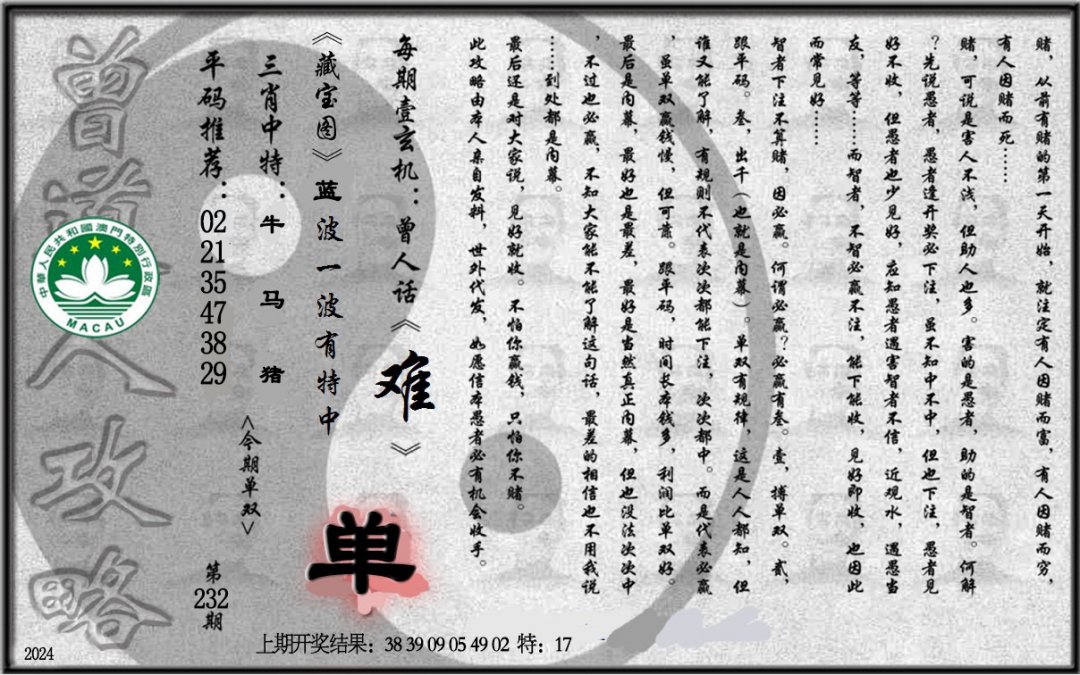 赌，从前有赌的第一天开始，就注定有人因赌而富，有人因赌而穷，
有人因赌而死……
赌，可说是害人不浅，但助人也多。害的是愚者，助的是智者。何解
？先说愚者，愚者逢开奖必下注，虽不知中不中，但也下注，愚者见
好不收，但愚者也少见好，应知愚者遇害智者不信，近观水，遇愚当
友，等等……而智者，不智必赢不注，能下能收，见好即收，也因此
而常见好……
智者下注不算赌，因必赢。何谓必赢？必赢有叁。壹，搏单双。贰，
跟平码。叁，出千（也就是内幕）。单双有规律，这是人人都知，但
谁又能了解，有规则不代表次次都能下注，次次都中。而是代表必赢
，虽单双赢钱慢，但可靠。跟平码，时间长本钱多，利润比单双好。
最后是内幕，最好也是最差，最好是当然真正内幕，但也没法次次中
，不过也必赢，不知大家能不能了解这句话，最差的相信也不用我说
……到处都是内幕。
最后还是对大家说，见好就收。不怕你赢钱，只怕你不赌。
此攻略由本人亲自发料，世外代发，如愿信本愚者必有机会收手。
每期壹玄机：曾人话《难》
《藏宝图》蓝波一波有特中
三肖中特：牛 马 猪
<今期单双>
单
平码推荐：02 21 35 47 38 29
第232期
曾道人攻略
中華人民共和國澳門特別行政區
MACAU
上期开奖结果：38 39 09 05 49 02 特：17
2024